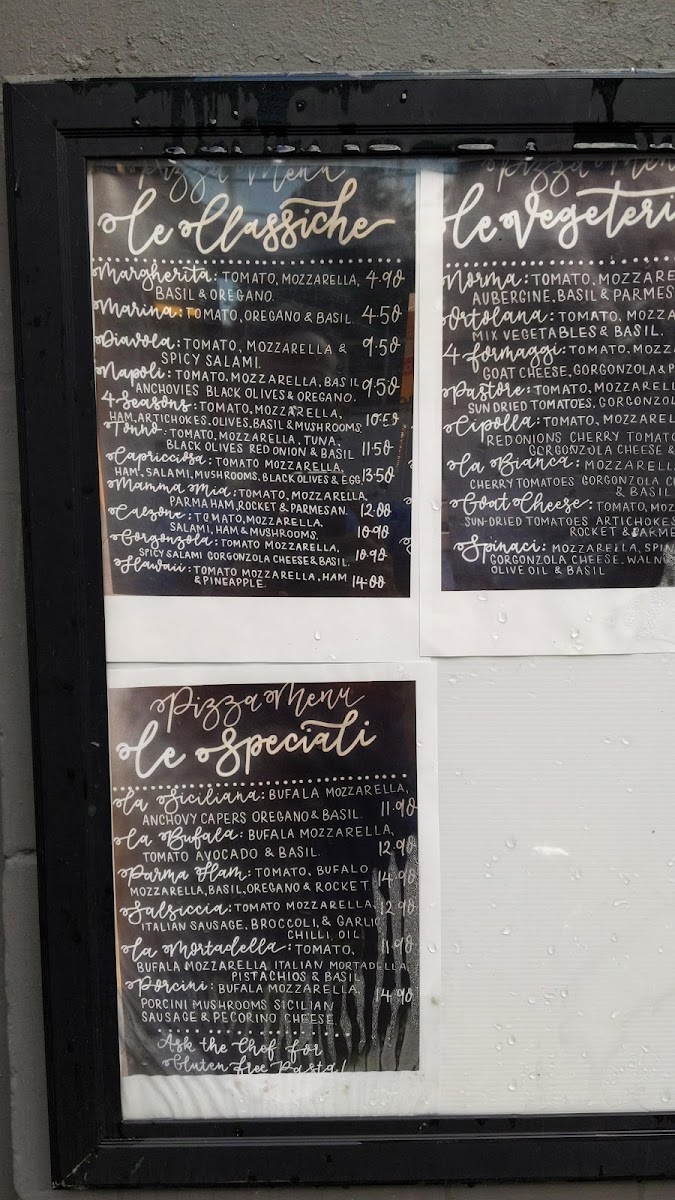 Pizza Menu
Le Classiche
Margherita: TOMATO, MOZZARELLA, 4.90
BASIL & OREGANO.
Marina: TOMATO, OREGANO & BASIL. 4.50
Diavola: TOMATO, MOZZARELLA & 9.50
SPICY SALAMI.
Napoli: TOMATO, MOZZARELLA, BASIL 9.50
ANCHOVIES BLACK OLIVES & OREGANO.
4 Seasons: TOMATO, MOZZARELLA, 10.50
HAM, ARTICHOKES, OLIVES, BASIL & MUSHROOMS.
Tonno: TOMATO, MOZZARELLA, TUNA, 11.50
BLACK OLIVES RED ONION & BASIL
Capricciosa: TOMATO MOZZARELLA, 13.50
HAM, SALAMI, MUSHROOMS, BLACK OLIVES & EGG
Mamma Mia: TOMATO, MOZZARELLA, 12.00
PARMA HAM, ROCKET & PARMESAN.
Calzone: TOMATO, MOZZARELLA, 10.90
SALAMI, HAM & MUSHROOMS.
Gorgonzola: TOMATO MOZZARELLA, 10.90
SPICY SALAMI GORGONZOLA CHEESE & BASIL.
Hawaii: TOMATO MOZZARELLA, HAM 14.00
& PINEAPPLE.
Pizza Menu
Le Vegeteri
Norma: TOMATO, MOZZARE
AUBERGINE, BASIL & PARMES
Ortolana: TOMATO, MOZZA
MIX VEGETABLES & BASIL.
4 formaggi: TOMATO, MOZZ
GOAT CHEESE, GORGONZOLA & P
Pastore: TOMATO, MOZZARELL
SUN DRIED TOMATOES, GORGONZOL
Cipolla: TOMATO, MOZZAREL
RED ONIONS CHERRY TOMATO
GORGONZOLA CHEESE &
La Bianca: MOZZARELL
CHERRY TOMATOES GORGONZOLA C
& BASIL
Goat Cheese: TOMATO, MOZ
SUN-DRIED TOMATOES ARTICHOKES
ROCKET & PARME
Spinaci: MOZZARELLA, SPIN
GORGONZOLA CHEESE, WALN
OLIVE OIL & BASIL
Pizza Menu
Le Speciali
La Siciliana: BUFALA MOZZARELLA, 11.90
ANCHOVY CAPERS OREGANO & BASIL.
La Bufala: BUFALA MOZZARELLA, 12.90
TOMATO AVOCADO & BASIL.
Parma Ham: TOMATO, BUFALO 14.90
MOZZARELLA, BASIL, OREGANO & ROCKET
Salsiccia: TOMATO MOZZARELLA, 12.90
ITALIAN SAUSAGE, BROCCOLI, & GARLIC
CHILLI OIL
La Mortadella: TOMATO, 11.90
BUFALA MOZZARELLA ITALIAN MORTADELLA,
PISTACHIOS & BASIL
Porcini: BUFALA MOZZARELLA, 14.90
PORCINI MUSHROOMS SICILIAN
SAUSAGE & PECORINO CHEESE
Ask the Chef for
Gluten Free Pasta!